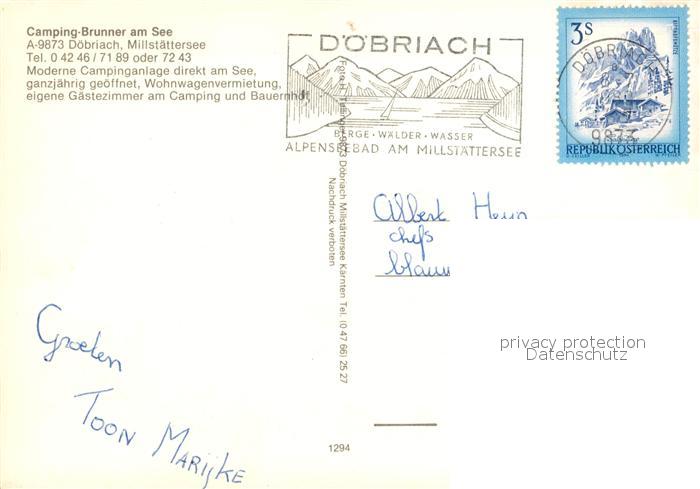 Camping-Brunner am See
A-9873 Döbriach, Millstättersee
Tel. 0 42 46 / 71 89 oder 72 43
Moderne Campinganlage direkt am See,
ganzjährig geöffnet, Wohnwagenvermietung,
eigene Gästezimmer am Camping und Bauernhof
DÖBRIACH
BERGE · WÄLDER · WASSER
ALPENSEEBAD AM MILLSTÄTTERSEE
3S
DÖBRIACH
9873
REPUBLIK ÖSTERREICH
9873 Döbriach Millstättersee Kärnten Tel. (0 47 66) 25 27
Nachdruck verboten
Albert
chefs
Groeten
TOON MARIJKE
privacy protection
Datenschutz
1294